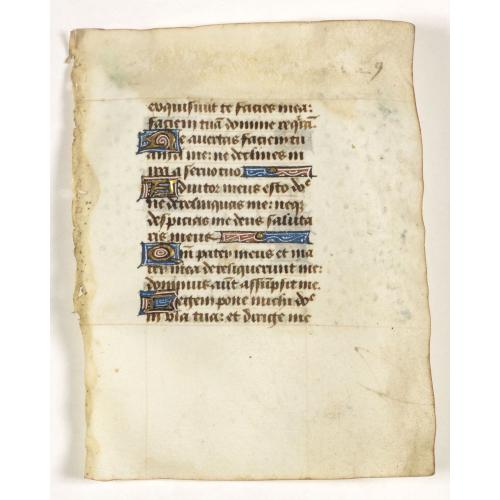 9
exquisivit te facies mea:
faciem tuā domine requirā.
Ne avertas faciem tu
am a me: ne declines in
ira a servo tuo
Adiutor meus esto do͞e
ne derelinquas me: neq
despicias me deus saluta
ris meus
Qm pater meus et ma
ter mea dereliquerunt me:
dominus aūt assūpsit me.
Legem pone michi do͞e
in via tua: et dirige me